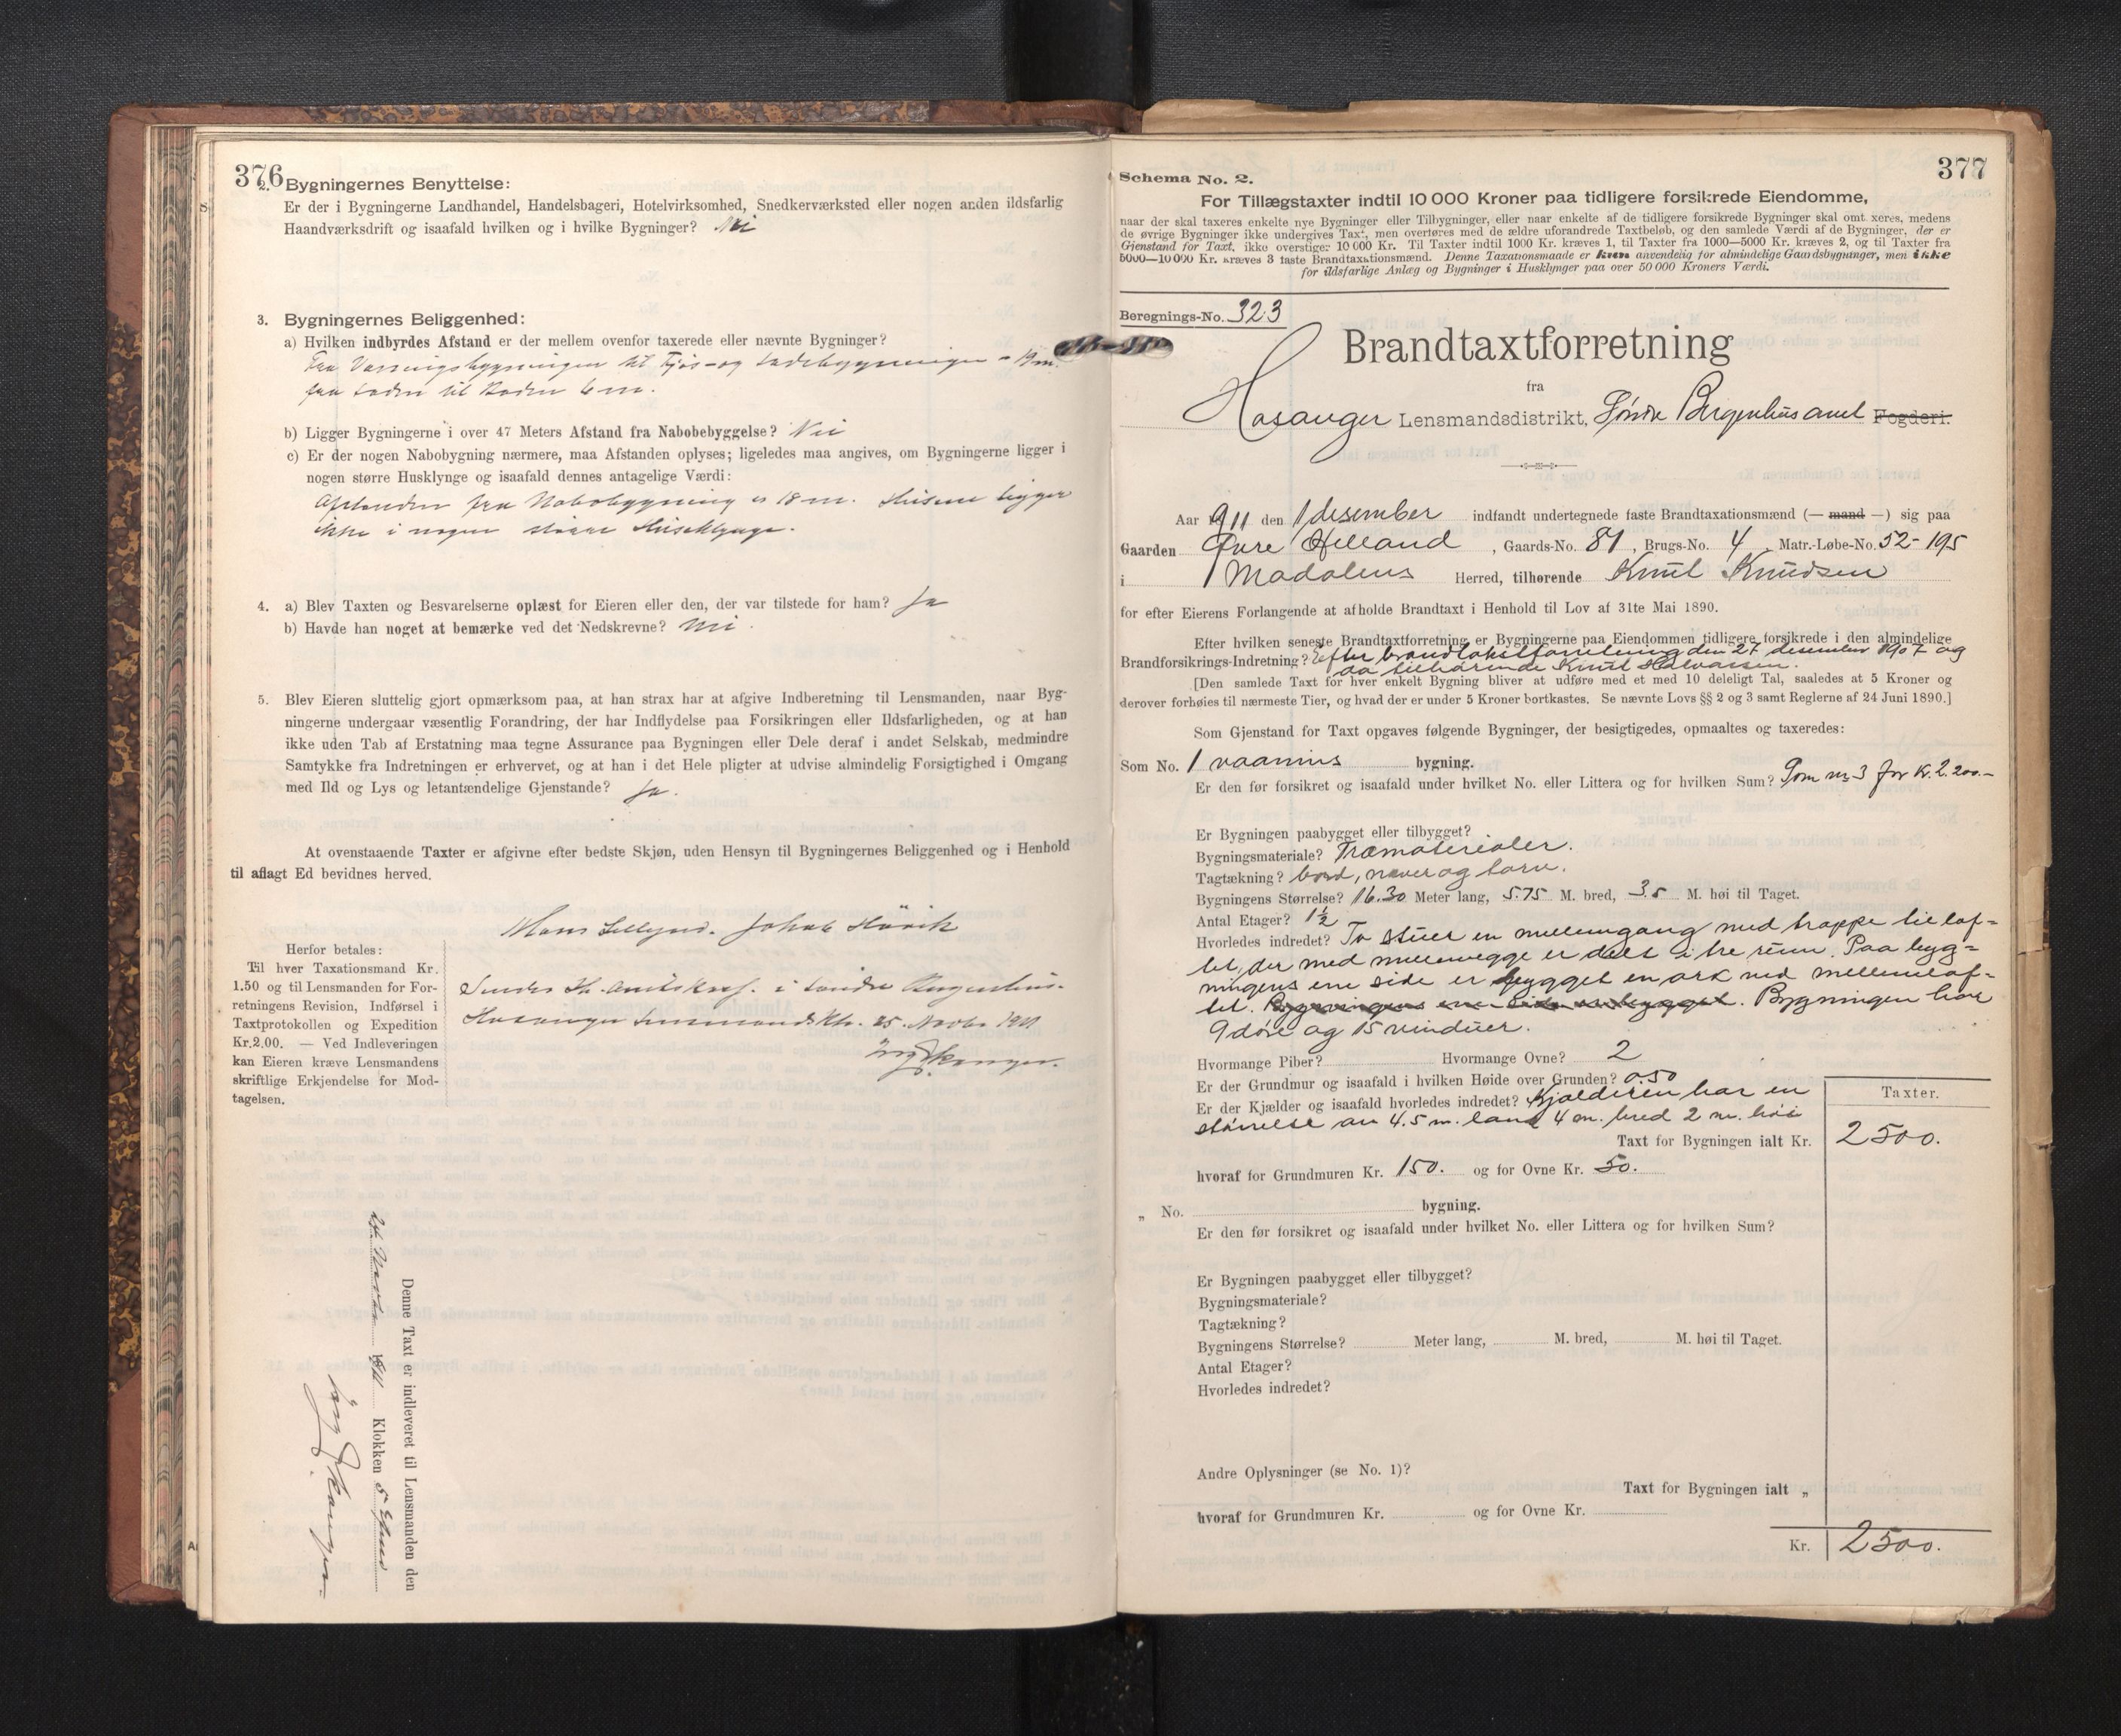 376
2. Bygningernes Benyttelse:
Er der i Bygningerne Landhandel, Handelsbageri, Hotelvirksomhed, Snedkerværksted eller nogen anden ildsfarlig
Haandværksdrift og isaafald hvilken og i hvilke Bygninger? Nei
3. Bygningernes Beliggenhed:
a) Hvilken indbyrdes Afstand er der mellem ovenfor taxerede eller nævnte Bygninger?
Fra Vaaningsbygningen til Fjøs- og Ladebygningen = 19 m.
fra Laden til Boden 6 m.
b) Ligger Bygningerne i over 47 Meters Afstand fra Nabobebyggelse? Nei
c) Er der nogen Nabobygning nærmere, maa Afstanden oplyses; ligeledes maa angives, om Bygningerne ligger i
nogen større Husklynge og isaafald dennes antagelige Værdi:
Afstanden fra Nabobygning er 18 m. Husene ligger
ikke i nogen større Husklynge.
4. a) Blev Taxten og Besvarelserne oplæst for Eieren eller den, der var tilstede for ham? Ja
b) Havde han noget at bemærke ved det Nedskrevne? Nei.
5. Blev Eieren sluttelig gjort opmærksom paa, at han strax har at afgive Indberetning til Lensmanden, naar Byg-
ningerne undergaar væsentlig Forandring, der har Indflydelse paa Forsikringen eller Ildsfarligheden, og at han
ikke uden Tab af Erstatning maa tegne Assurance paa Bygningen eller Dele deraf i andet Selskab, medmindre
Samtykke fra Indretningen er erhvervet, og at han i det Hele pligter at udvise almindelig Forsigtighed i Omgang
med Ild og Lys og letantændelige Gjenstande? Ja.
At ovenstaaende Taxter er afgivne efter bedste Skjøn, uden Hensyn til Bygningernes Beliggenhed og i Henhold
til aflagt Ed bevidnes herved.
Jakob
Herfor betales:
Til hver Taxationsmand Kr.
1.50 og til Lensmanden for For-
retningens Revision, Indførsel i
Taxtprotokollen og Expedition
Kr. 2.00. — Ved Indleveringen
kan Eieren kræve Lensmandens
skriftlige Erkjendelse for Mod-
tagelsen.
Sendes Hr. i Søndre Bergenhus.
Hosanger Lensmandsktr. 25. Novbr 1911
Denne Taxt er indleveret til Lensmanden den
1911 Klokken 5 Efmd
377
Schema No. 2.
For Tillægstaxter indtil 10 000 Kroner paa tidligere forsikrede Eiendomme,
naar der skal taxeres enkelte nye Bygninger eller Tilbygninger, eller naar enkelte af de tidligere forsikrede Bygninger skal omt xeres, medens
de øvrige Bygninger ikke undergives Taxt, men overtøres med de ældre uforandrede Taxtbeløb, og den samlede Værdi af de Bygninger, der er
Gjenstand for Taxt, ikke overstiger 10 000 Kr. Til Taxter indtil 1000 Kr. kræves 1, til Taxter fra 1000—5000 Kr. kræves 2, og til Taxter fra
5000—10 000 Kr. kræves 3 faste Brandtaxationsmænd. Denne Taxationsmaade er kun anvendelig for almindelige Gaardsbygninger, men ikke
for ildsfarlige Anlæg og Bygninger i Husklynger paa over 50 000 Kroners Værdi.
Beregnings-No. 323
Brandtaxtforretning
fra
Hosanger Lensmandsdistrikt, Søndre Bergenhus amt Fogderi.
Aar 1911 den 1 desember indfandt undertegnede faste Brandtaxationsmænd (— mand —) sig paa
Gaarden Øvre Helland, Gaards-No. 81, Brugs-No. 4, Matr.-Løbe-No. 52-195
i Modalens Herred, tilhørende Knut Knudsen
for efter Eierens Forlangende at afholde Brandtaxt i Henhold til Lov af 31te Mai 1890.
Efter hvilken seneste Brandtaxtforretning er Bygningerne paa Eiendommen tidligere forsikrede i den almindelige
Brandforsikrings-Indretning? Efter brandtakstforretning den 27 desember 1907 og
da tilhørende Knut Halvorsen.
[Den samlede Taxt for hver enkelt Bygning bliver at udføre med et med 10 deleligt Tal, saaledes at 5 Kroner og
derover forhøies til nærmeste Tier, og hvad der er under 5 Kroner bortkastes. Se nævnte Lovs §§ 2 og 3 samt Reglerne af 24 Juni 1890.]
Som Gjenstand for Taxt opgaves følgende Bygninger, der besigtigedes, opmaaltes og taxeredes:
Som No. 1 vaanins bygning.
Er den før forsikret og isaafald under hvilket No. eller Littera og for hvilken Sum? Som no 3 for Kr. 2.200.-
Er Bygningen paabygget eller tilbygget?
Bygningsmateriale? Træmaterialer.
Tagtækning? bord, næver og torv.
Bygningens Størrelse? 16.30 Meter lang, 5.75 M. bred, 3.5 M. høi til Taget.
Antal Etager? 1½
Hvorledes indredet? To stuer en mellemgang med trappe til lof-
tet, der med mellemvegge er delt i tre rum. Paa byg-
ningens ene side er bygget en ark med mellemlof-
tet. Bygningens ene side er bygget. Bygningen har
9 døre og 15 vinduer.
Hvormange Piber? Hvormange Ovne? 2
Er der Grundmur og isaafald i hvilken Høide over Grunden? 0.50
Er der Kjælder og isaafald hvorledes indredet? Kjælderen har en
størrelse av 4.5 m. lang 4 m. bred 2 m. høi
Taxter.
Taxt for Bygningen ialt Kr. 2500.
hvoraf for Grundmuren Kr. 150. og for Ovne Kr. 50.
„ No. bygning.
Er den før forsikret og isaafald under hvilket No. eller Littera og for hvilken Sum?
Er Bygningen paabygget eller tilbygget?
Bygningsmateriale?
Tagtækning?
Bygningens Størrelse? Meter lang, M. bred, M. høi til Taget.
Antal Etager?
Hvorledes indredet?
Andre Oplysninger (se No. 1)?
Taxt for Bygningen ialt „
hvoraf for Grundmuren Kr. og for Ovne Kr.
Kr. 2500.